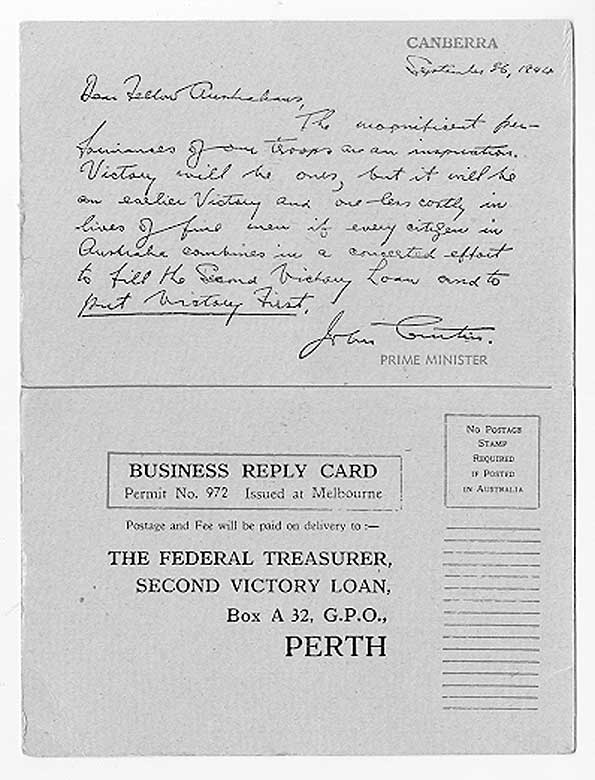 CANBERRA
September 26, 1944
Dear Fellow Australians,
The magnificent per-
formances of our troops are an inspiration.
Victory will be ours, but it will be
an earlier Victory and one less costly in
lives of fine men if every citizen in
Australia combines in a concerted effort
to fill the Second Victory Loan and to
put Victory First.
John Curtin.
PRIME MINISTER
BUSINESS REPLY CARD
Permit No. 972 Issued at Melbourne
Postage and Fee will be paid on delivery to :—
THE FEDERAL TREASURER,
SECOND VICTORY LOAN,
Box A 32, G.P.O.,
PERTH
No Postage
Stamp
Required
if Posted
in Australia